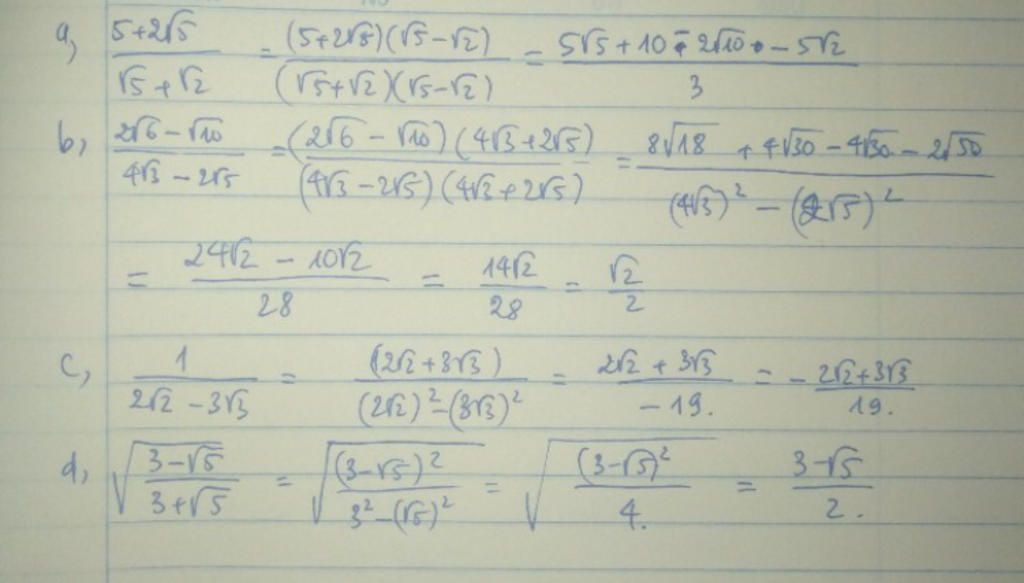 a, (5+2√5)/(√5+√2) = ((5+2√5)(√5-√2))/((√5+√2)(√5-√2)) = (5√5+10-2√10-5√2)/3
b, (2√6-√10)/(4√3-2√5) = ((2√6-√10)(4√3+2√5))/((4√3-2√5)(4√3+2√5)) = (8√18+4√30-4√30-2√50)/((4√3)²-(2√5)²)
= (24√2-10√2)/28 = 14√2/28 = √2/2
c, 1/(2√2-3√3) = (2√2+3√3)/((2√2)²-(3√3)²) = (2√2+3√3)/(-19.) = -(2√2+3√3)/19.
d, √((3-√5)/(3+√5)) = √((3-√5)²/(3²-(√5)²)) = √((3-√5)²/4.) = (3-√5)/2.